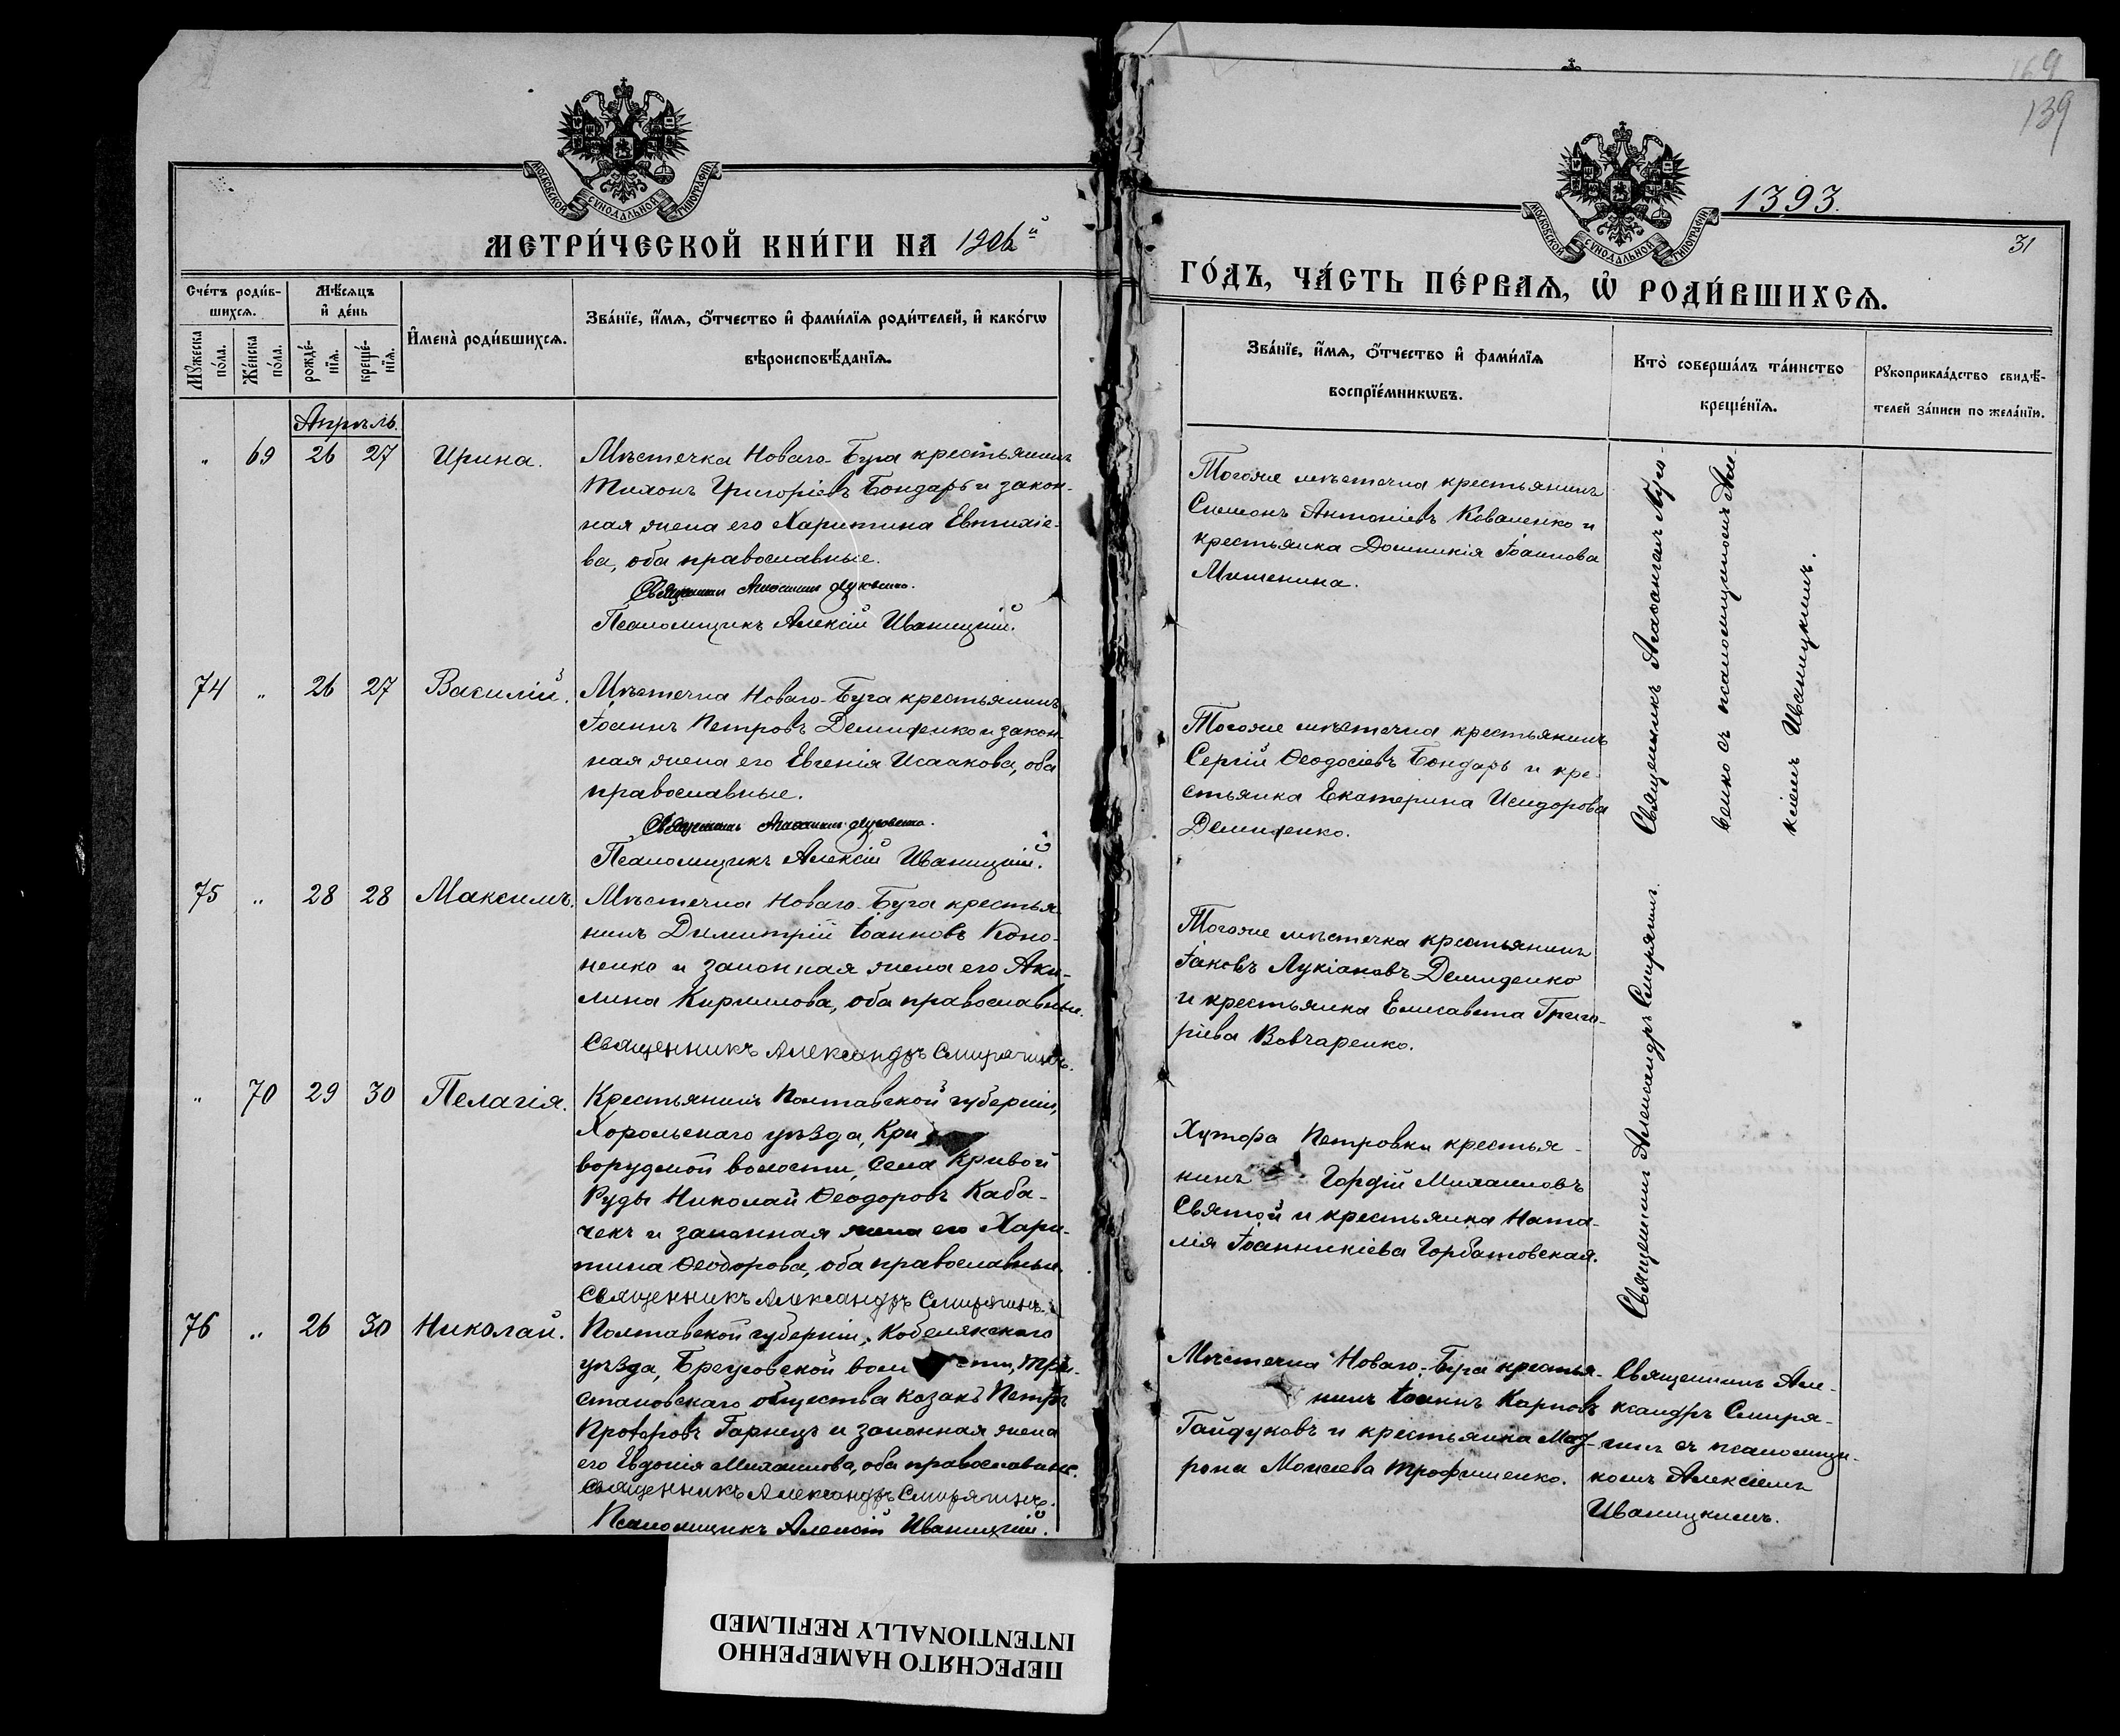 МОСКОВСКОЙ СУНОДАЛЬНОЙ ТИПОГРАФІИ
МЕТРИ́ЧЕСКОЙ КНИ́ГИ НА
Сче́тъ роди́в-
шихсѧ.
Мꙋжеска
по́ла.
Же́нска
по́ла.
Мѣ́сѧцъ
и҆ де́нь
рожде́-
нїѧ.
креще́-
нїѧ.
И҆мена̀ роди́вшихсѧ.
Зва́нїе, и҆́мѧ, ѻ҆́тчество и҆ фами́лїѧ роди́телей, и҆ како́гѡ
вѣроисповѣ́данїѧ.
Апрѣль.
" 69 26 27 Ирина.
Мѣстечка Новаго-Буга крестьянинъ
Тихонъ Григоріевъ Бондарь и закон-
ная жена его Харитина Евтихіе-
ва, оба православные.
Священникъ
Псаломщикъ Алексій Иваницкій.
74 " 26 27 Василій.
Мѣстечка Новаго-Буга крестьянинъ
Іоаннъ Петровъ Демиденко и закон-
ная жена его Евгенія Исаакова, оба
православные.
Священникъ
Псаломщикъ Алексій Иваницкій.
75 " 28 28 Максимъ.
Мѣстечка Новаго-Буга крестья-
нинъ Димитрій Іоанновъ Коно-
ненко и законная жена его Аки-
лина Кириллова, оба православные.
Священникъ Александръ Смирягинъ.
" 70 29 30 Пелагія.
Крестьянинъ Полтавской губерніи,
Хорольскаго уѣзда, Кри
ворудской волости, села Кривой
Руды Николай Ѳеодоровъ Каба-
чекъ и законная жена его Хари-
тина Ѳеодорова, оба православные.
Священникъ Александръ Смирягинъ.
76 " 26 30 Николай.
Полтавской губерніи, Кобелякскаго
уѣзда, Бреусовской воло сти, Три-
становскаго общества козакъ Петръ
Прохоровъ Гарнецъ и законная жена
его Евдокія Михаилова, оба православные.
Священникъ Александръ Смирягинъ.
Псаломщикъ Алексій Иваницкій.
169
139
МОСКОВСКОЙ СУНОДАЛЬНОЙ ТИПОГРАФІИ
1393.
31
ГО́ДЪ, ЧА́СТЬ ПЕ́РВАѦ, Ѡ҆ РОДИ́ВШИХСѦ.
Зва́нїе, и҆́мѧ, ѻ҆́тчество и҆ фами́лїѧ
воспрїе́мникѡвъ.
Кто̀ соверша́лъ та́инство
креще́нїѧ.
Рꙋкоприкла́дство свидѣ́-
телей за́писи по жела́нїю.
Тогоже мѣстечка крестьянинъ
Симеонъ Антоніевъ Коваленко и
крестьянка Домникія Іоаннова
Митенина.
Тогоже мѣстечка крестьянинъ
Сергій Ѳеодосіевъ Бондарь и кре-
стьянка Екатерина Исидорова
Демиденко.
Священникъ Агаѳангелъ Луго-
венко съ псаломщикомъ Але-
ксіемъ Иваницкимъ.
Тогоже мѣстечка крестьянинъ
Іаковъ Лукіановъ Демиденко
и крестьянка Елисавета Григо-
ріева Вовчаренко.
Хутора Петровки крестья-
нинъ Гордій Михаиловъ
Святой и крестьянка Ната-
лія Іоанникіева Горбатовская.
Священникъ Александръ Смирягинъ.
Мѣстечка Новаго-Буга крестья-
нинъ Іоаннъ Карповъ
Гайдуковъ и крестьянка Мат-
рона Моисеева Трофименко.
Священникъ Але-
ксандръ Смиря-
гинъ съ псаломщи-
комъ Алексіемъ
Иваницкимъ.
ПЕРЕСНЯТО НАМЕРЕННО
INTENTIONALLY REFILMED